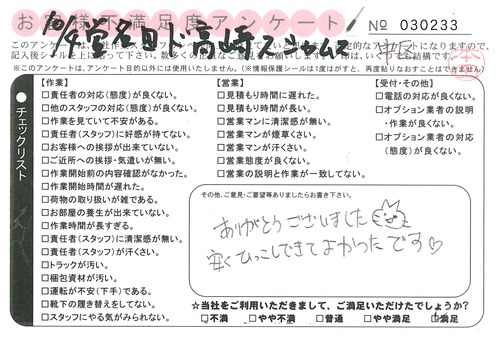 お客様不満足度アンケート
No 030233
【作業】
□責任者の対応(態度)が良くない。
□他のスタッフの対応(態度)が良くない。
□作業を見ていて不安がある。
□責任者(スタッフ)に好感が持てない。
□お客様への挨拶が出来ていない。
□ご近所への挨拶・気遣いが無い。
□作業開始前の内容確認がなかった。
□作業開始時間が遅れた。
□荷物の取り扱いが雑である。
□お部屋の養生が出来ていない。
□作業時間が長すぎる。
□責任者(スタッフ)に清潔感が無い。
□責任者(スタッフ)が汗くさい。
□トラックが汚い。
□梱包資材が汚い。
□運転が不安(下手)である。
□靴下の履き替えをしてない。
□スタッフにやる気がみられない。
【営業】
□見積もり時間に遅れた。
□見積もり時間が長い。
□営業マンに清潔感が無い。
□営業マンが煙草くさい。
□営業マンが汗くさい。
□営業態度が良くない。
□営業の説明と作業が一致してない。
【受付・その他】
□電話の対応が良くない。
□オプション業者の説明
・作業が良くない。
□オプション業者の対応
(態度)が良くない。
チェックリスト
その他、ご意見・ご要望等ありましたらお書き下さい。
ありがとうございました
安くひっこしできてよかったです♡
☆当社をご利用いただきまして、ご満足いただけたでしょうか?
□不満 □やや不満 □普通 □やや満足 □満足